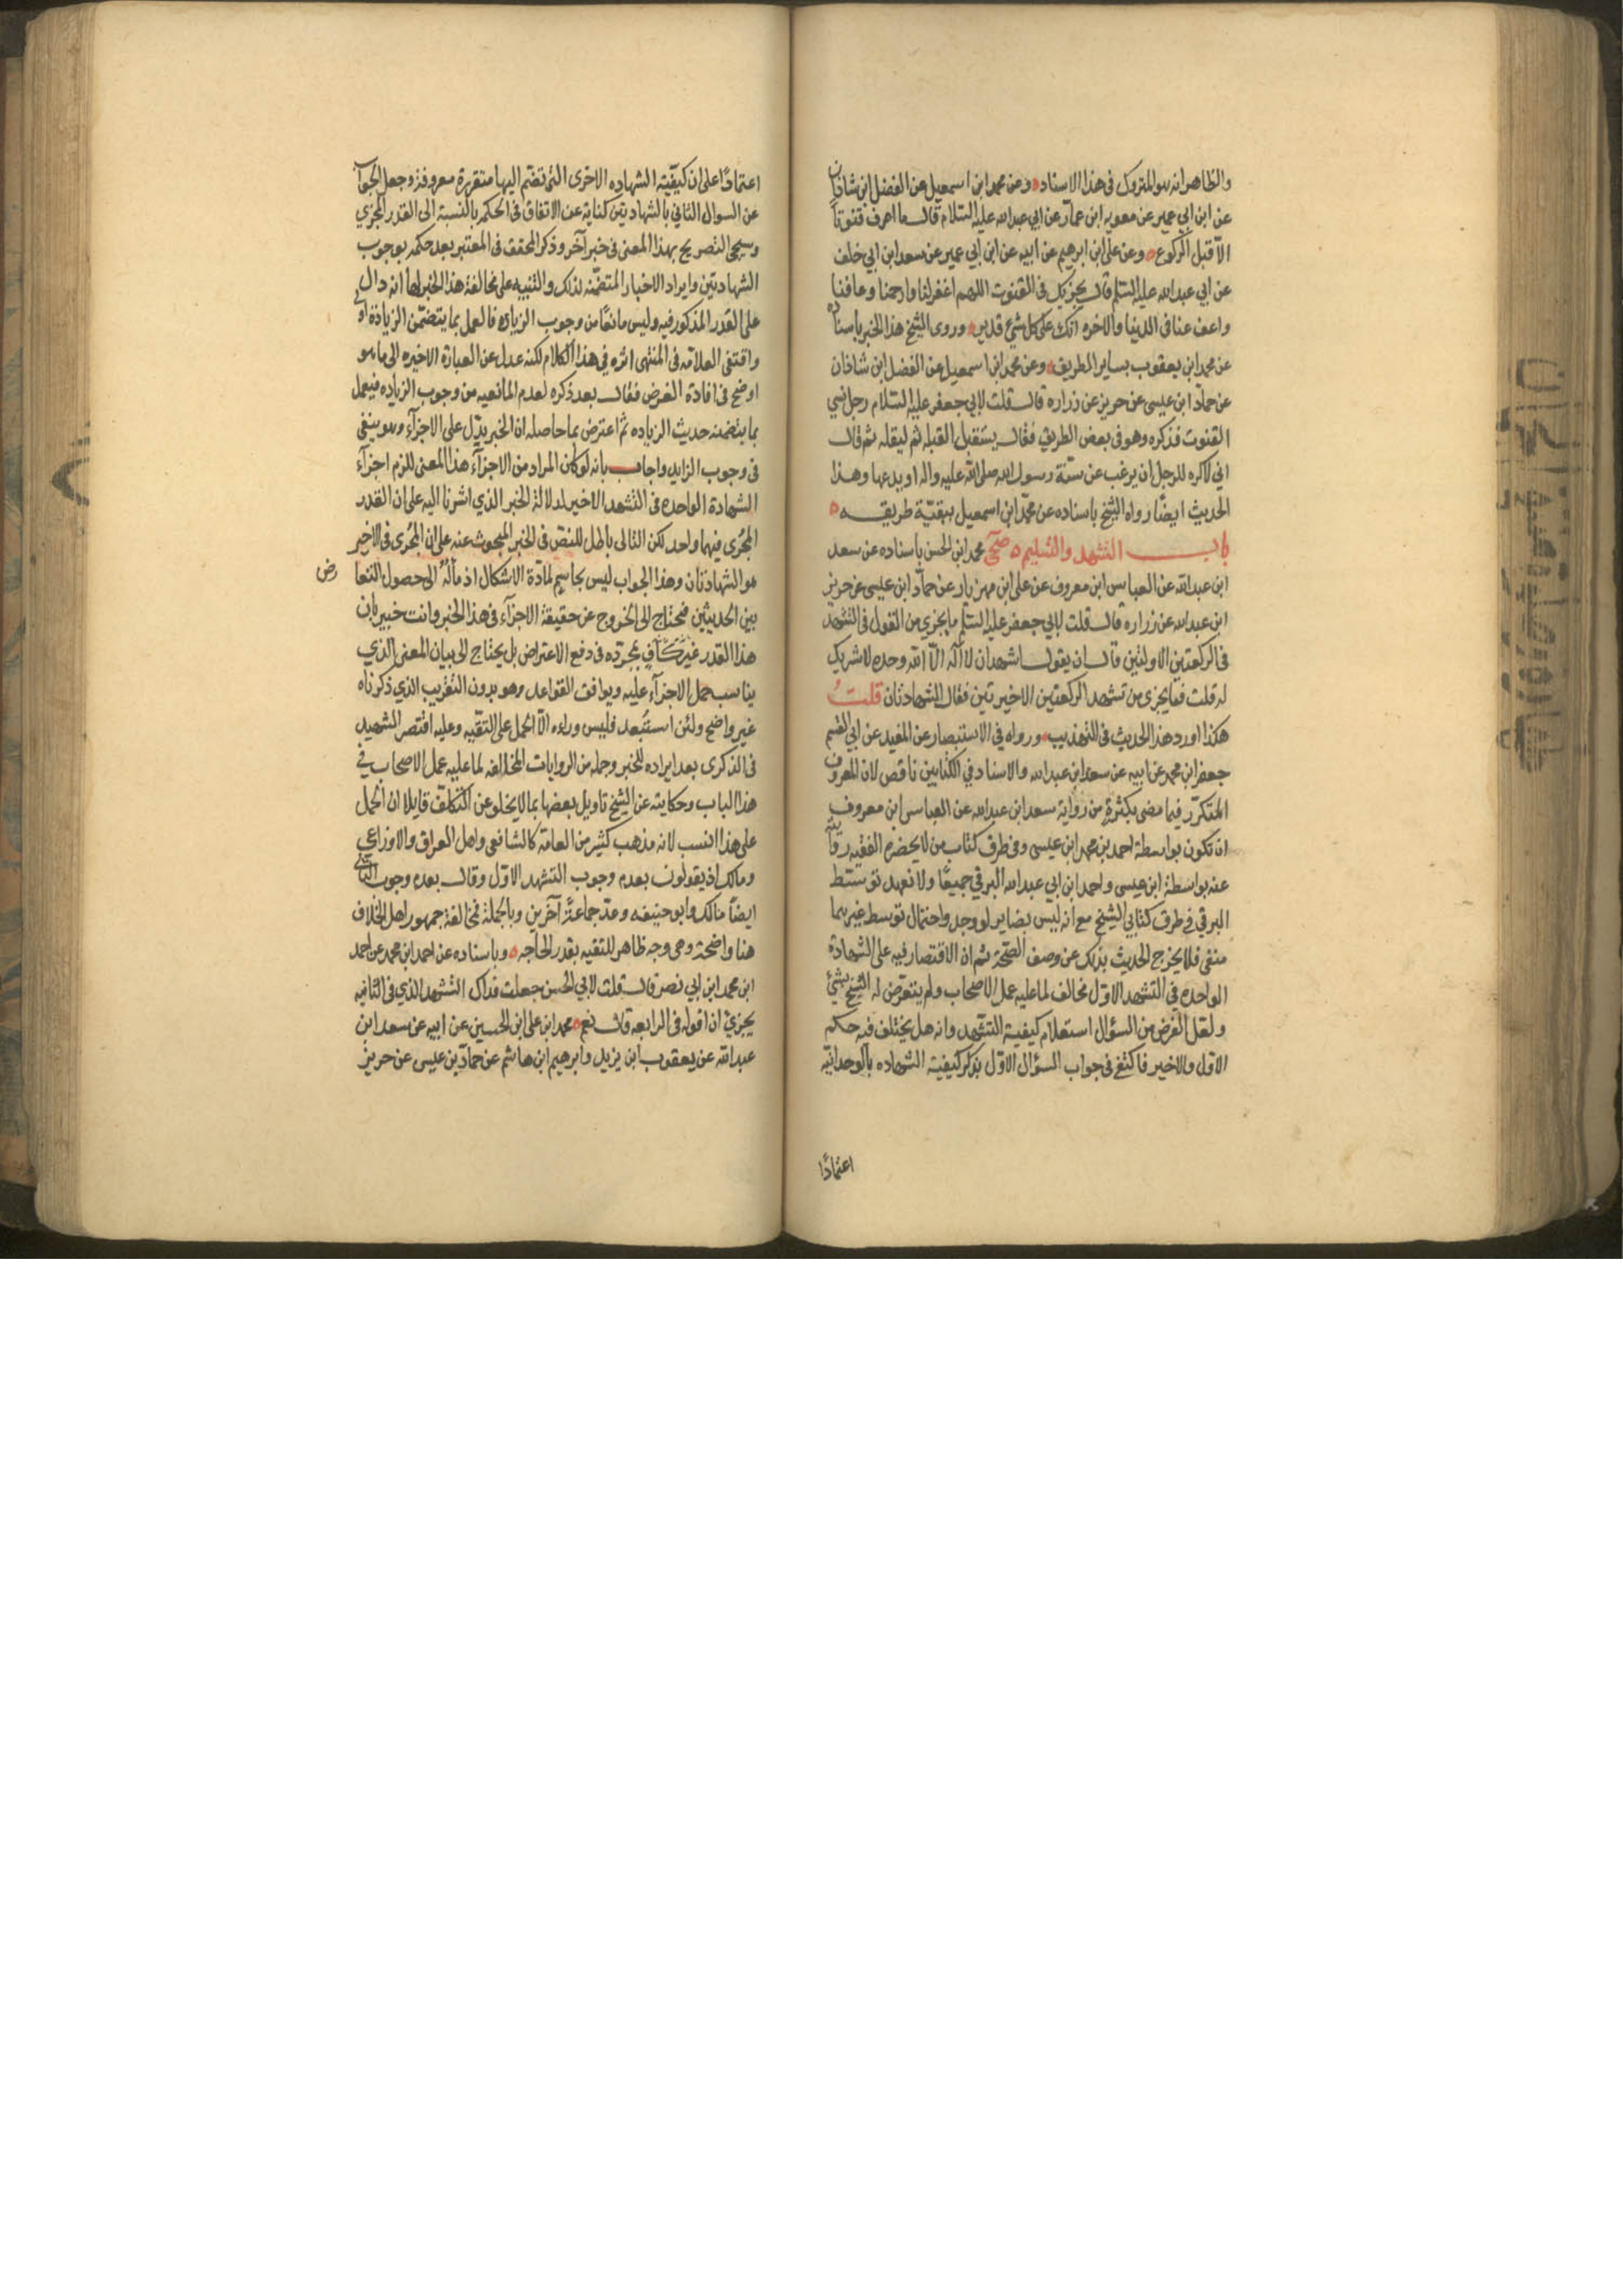 والظاهر انه هو المتروك فى هذا الاسناد ه وعن محمد ابن اسمعيل عن الفضل ابن شاذان
عن ابن ابي عمير عن معويه ابن عمار عن ابي عبد الله عليه السلام قال ما اعرف قنوتا
الا قبل الركوع ه وعن على ابن ابرهيم عن ابيه عن ابن ابي عمير عن سعد ابن ابي خلف
عن ابي عبد الله عليه السلم قال يجزيك فى القنوت اللهم اغفر لنا وارحمنا وعافنا
واعف عنا فى الدنيا والاخره انك على كل شيء قدير ه وروى الشيخ هذا الخبر باسناده
عن محمد ابن يعقوب بساير الطريق ه وعن محمد ابن اسمعيل عن الفضل ابن شاذان
عن حماد ابن عيسى عن حريز عن زراره قال قلت لابي جعفر عليه السلام رجل نسي
القنوت فذكره وهو فى بعض الطريق فقال يستقبل القبله ثم ليقله ثم قال
اني لاكره للرجل ان يرغب عن سنة رسول الله صلى الله عليه واله او يدعها وهذا
الحديث ايضا رواه الشيخ باسناده عن محمد ابن اسمعيل ببقية طريقه ه
باب التشهد والتسليم ه صحي محمد ابن الحسن باسناده عن سعد
ابن عبد الله عن العباس ابن معروف عن على ابن مهزيار عن حماد ابن عيسى عن حريز
ابن عبد الله عن زراره قال قلت لابي جعفر عليه السلم ما يجزي من القول فى التشهد
فى الركعتين الاولتين قال ان يقول اشهد ان لا اله الا الله وحده لا شريك
له قلت فما يجزى من تشهد الركعتين الاخيرتين فقال الشهادتان قلت
هكذا اورد هذا الحديث فى التهذيب ورواه في الاستبصار عن المفيد عن ابي القسم
جعفر ابن محمد عن ابيه عن سعد ابن عبد الله والاسناد في الكتابين ناقص لان المعروف
المتكرر فيما مضى بكثرة من رواية سعد ابن عبد الله عن العباس ابن معروف
ان تكون بواسطة احمد بن محمد ابن عيسى وفى طرق كتاب من لا يحضره الفقيه روايته
عنه بواسطة ابن عيسى واحمد ابن ابي عبد الله البرقي جميعا ولا نعهد توسط
البرقي في طرق كتابي الشيخ مع انه ليس بضاير لو وجد واحتمال توسط غيرهما
منفى فلا يخرج الحديث بذلك عن وصف الصحة ثم ان الاقتصار فيه على الشهادة
الواحده في التشهد الاول مخالف لما عليه عمل الاصحاب ولم يتعرض له الشيخ بشئ
ولعل الغرض من السؤال استعلام كيفية التشهد وانه هل يختلف فيه حكم
الاول والاخير فاكتفى فى جواب السؤال الاول بذكر كيفية الشهاده بالوحدانية
اعتمادًا
اعتمادًا على ان كيفية الشهاده الاخرى التى تضم اليها متقررة معروفة وجعل الجواب
عن السوال الثاني بالشهادتين كناية عن الاتفاق فى الحكم بالنسبة الى القدر المجزي
وسيجى التصريح بهذا المعنى فى خبر آخر وذكر المحقق فى المعتبر بعد حكمه بوجوب
الشهادتين وايراد الاخبار المتضمنه لذلك والتنبيه على مخالفة هذا الخبر لها انه دال
على القدر المذكور فيه وليس مانعا من وجوب الزياده فالعمل بما يتضمن الزيادة اولى
واقتفى العلامه فى المنتهى اثره في هذا الكلام لكنه عدل عن العبارة الاخيره الى ما هو
اوضح فى افادة الغرض فقال بعد ذكره لعدم المانعيه من وجوب الزياده فيعمل
بما يتضمنه حديث الزياده ثم اعترض بما حاصله ان الخبر يدل على الاجزآء وهو ينفى
فى وجوب الزايد واجاب بانه لو كان المراد من الاجزآء هذا المعنى للزم اجزآء
الشهادة الواحده فى التشهد الاخير لدلالة الخبر الذي اشرنا اليه على ان القدر
المجزى فيهما واحد لكن التالى باطل للنص فى الخبر المبحوث عنه على ان المجزى فى الاخير
هو الشهادتان وهذا الجواب ليس بحاسم لمادة الاشكال اذ مآله الى حصول التعا
رض
بين الحديثين فيحتاج الى الخروج عن حقيقة الاجزآء فى هذا الخبر وانت خبير بان
هذا القدر غير كاف بمجرده فى دفع الاعتراض بل يحتاج الى بيان المعنى الذي
يناسب حمل الاجزآء عليه ويوافق القواعد وهو بدون التقريب الذي ذكرناه
غير واضح ولئن استبعد فليس وراءه الا الحمل على التقيه وعليه اقتصر الشهيد
فى الذكرى بعد ايراده للخبر وجمله من الروايات المخالفه لما عليه عمل الاصحاب في
هذا الباب وحكايته عن الشيخ تاويل بعضها بما لا يخلو عن التكلف قايلا ان الحمل
على هذا انسب لانه مذهب كثير من العامة كالشافعى واهل العراق والاوزاعي
ومالك اذ يقولون بعدم وجوب التشهد الاول وقال بعده وجوب الثاني
ايضا مالك وابو حنيفه وعد جماعة آخرين وبالجملة فمخالفة جمهور اهل الخلاف
هنا واضحة وهى وجه ظاهر للتقيه بقدر الحاجه ه وباسناده عن احمد ابن محمد عن احمد
ابن محمد ابن ابي نصر قال قلت لابي الحسن جعلت فداك التشهد الذي فى الثانيه
يجزئ ان اقوله فى الرابعه قال نعم ه محمد ابن على ابن الحسين عن ابيه عن سعد ابن
عبد الله عن يعقوب ابن يزيد وابرهيم ابن هاشم عن حماد بن عيسى عن حريز